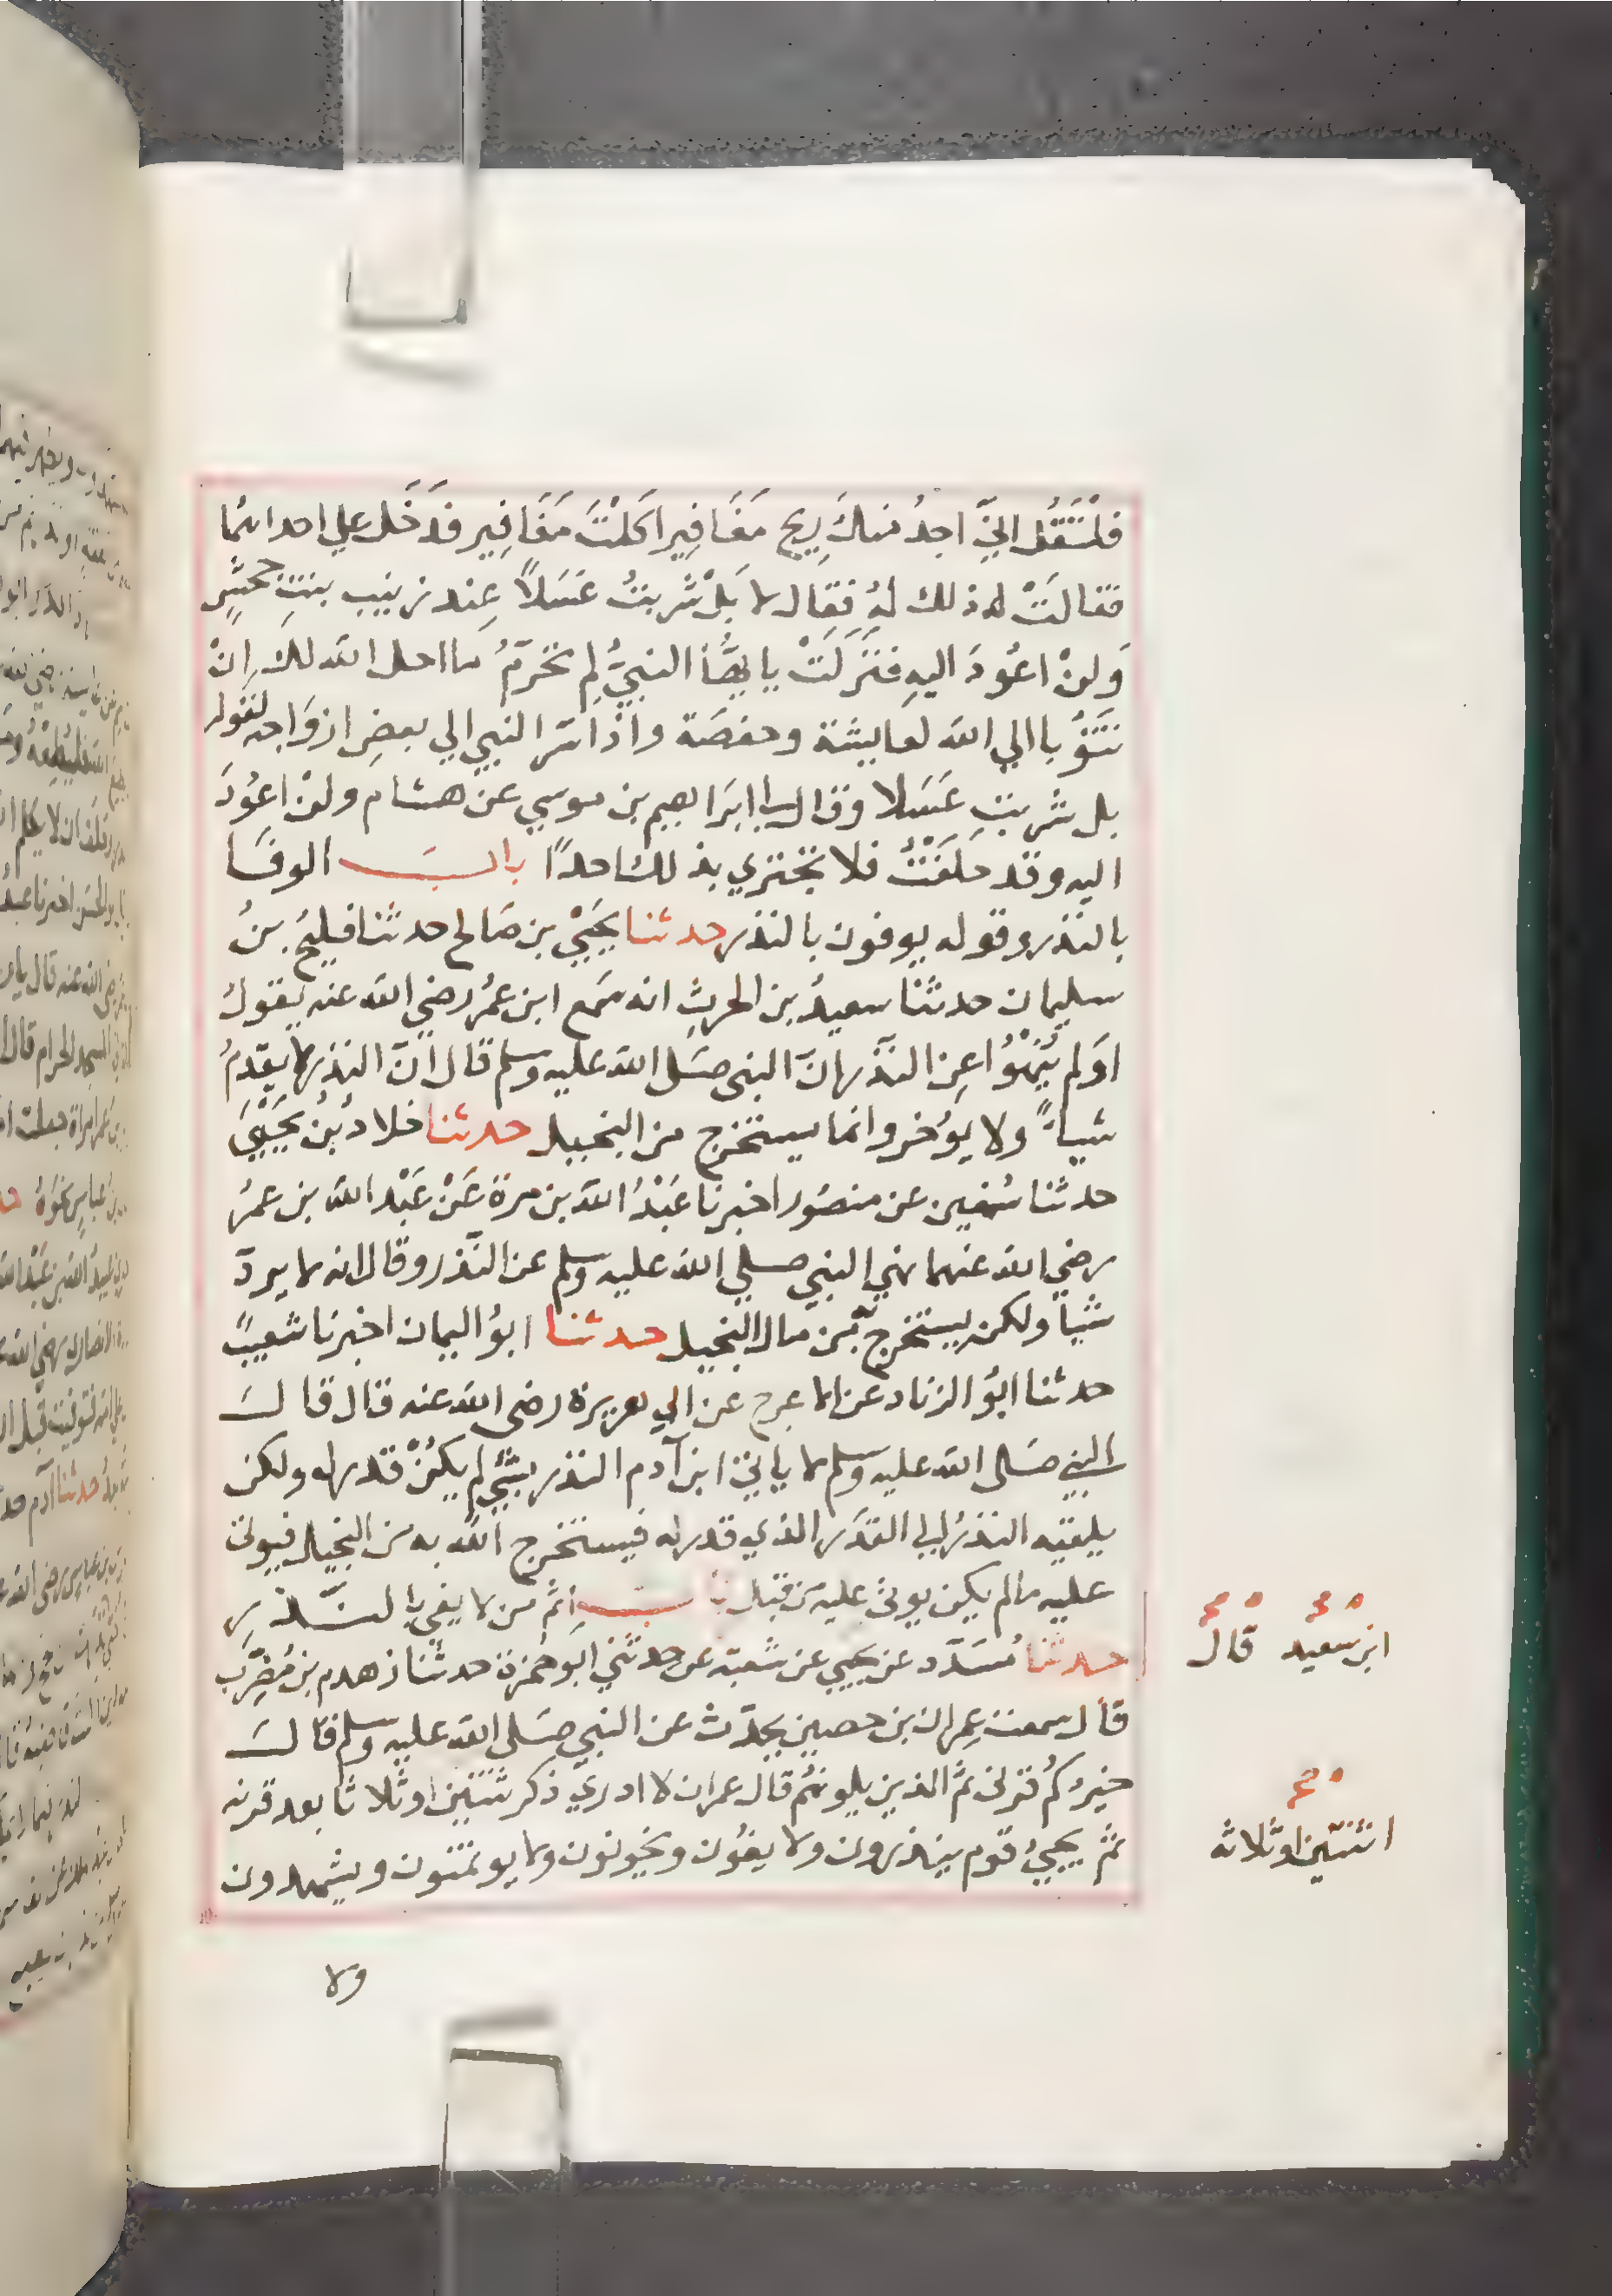 فلْتَقُل انيّ اجدُ منك رِيح مَغَافِير اكَلْتَ مَغَافِير فدَخَل علي احداهما
فقالتْ له ذلك لهُ فقال لا بَلْ شَربتُ عَسَلاً عِند زينب بنتِ جحشٍ
وَلنْ اعُودَ اليهِ فنَزَلَتْ يا ايهَّا النبيُّ لِم تحرّمُ ما احل الله لك اِنْ
تتَوُبا الي الله لعايشة وحفصَة واذ اسّر النبي الي بعضِ ازوَاجه لقوله
بل شربتِ عَسَلا وقال لي ابرَاهيم بن موسي عن هشام ولنْ اعُودَ
اليه وقد حَلَفْتُ فلا تخبري بذلك احدًا باب الوفَا
بالنذر وقوله يوفون بالنذر حدثنا يحَيْي بن صَالح حدثنا فليحُ بنُ
سليمان حدثنا سعيدُ بن الحرثِ انه سَمع ابن عمُر رضي الله عنه يقولُ
اوَلم يُنهَوْا عِن النذّر انّ النبي صَلى الله عليه وسلم قال انّ النذر لا يقدِمُ
شياً ولا يوُخر وانما يستخرج من البخيل حدثنا خلادُ بنُ يَحَيْيَ
حدثنا سُفين عن منصُور اخبرنا عَبْدُ الله بن مرة عَنْ عَبْد الله بن عمُر
رضي الله عنهما نهي النبي صلي الله عليه وسلم عن النّذر وقال انه لا يردّ
شياً ولكن يستخرج به من مال البخيل حدثنا ابوُ اليمان اخبرنا شعيبً
حدثنا ابوُ الزناد عن الاعرج عن ابي هريرة رضي الله عنه قال قال
النبي صَلى الله عليه وسلم لا ياتي ابن آدم النذر بشي لم يكُنْ قدر له ولكن
يلقيه النذرُ الي القدَر الذي قدر له فيستخرج الله به من البخيل فيوتى
عليه ما لم يكن يوتى عليه من قبل باب اثم من لا يفي بالنّذر
حدثنا مُسَدّد عن يحيي عن شعبة عن حدثني ابوُ حمزة حدثنا زهدم بن مُضَرّب
قال سمعت عِمران بن حصين يحدّث عن النبي صَلى الله عليه وسلم قال
خيرُكم قرني ثم الذين يلونهُم قال عمران لا ادري ذكر ثنتين او ثلاثا بعد قرنه
ثم يجيُ قوم ينذرون ولا يفوُن ويخونون ولا يوتمنون ويشهدون
ولا
ابن سعيد قال
اثنتين او ثلاثه